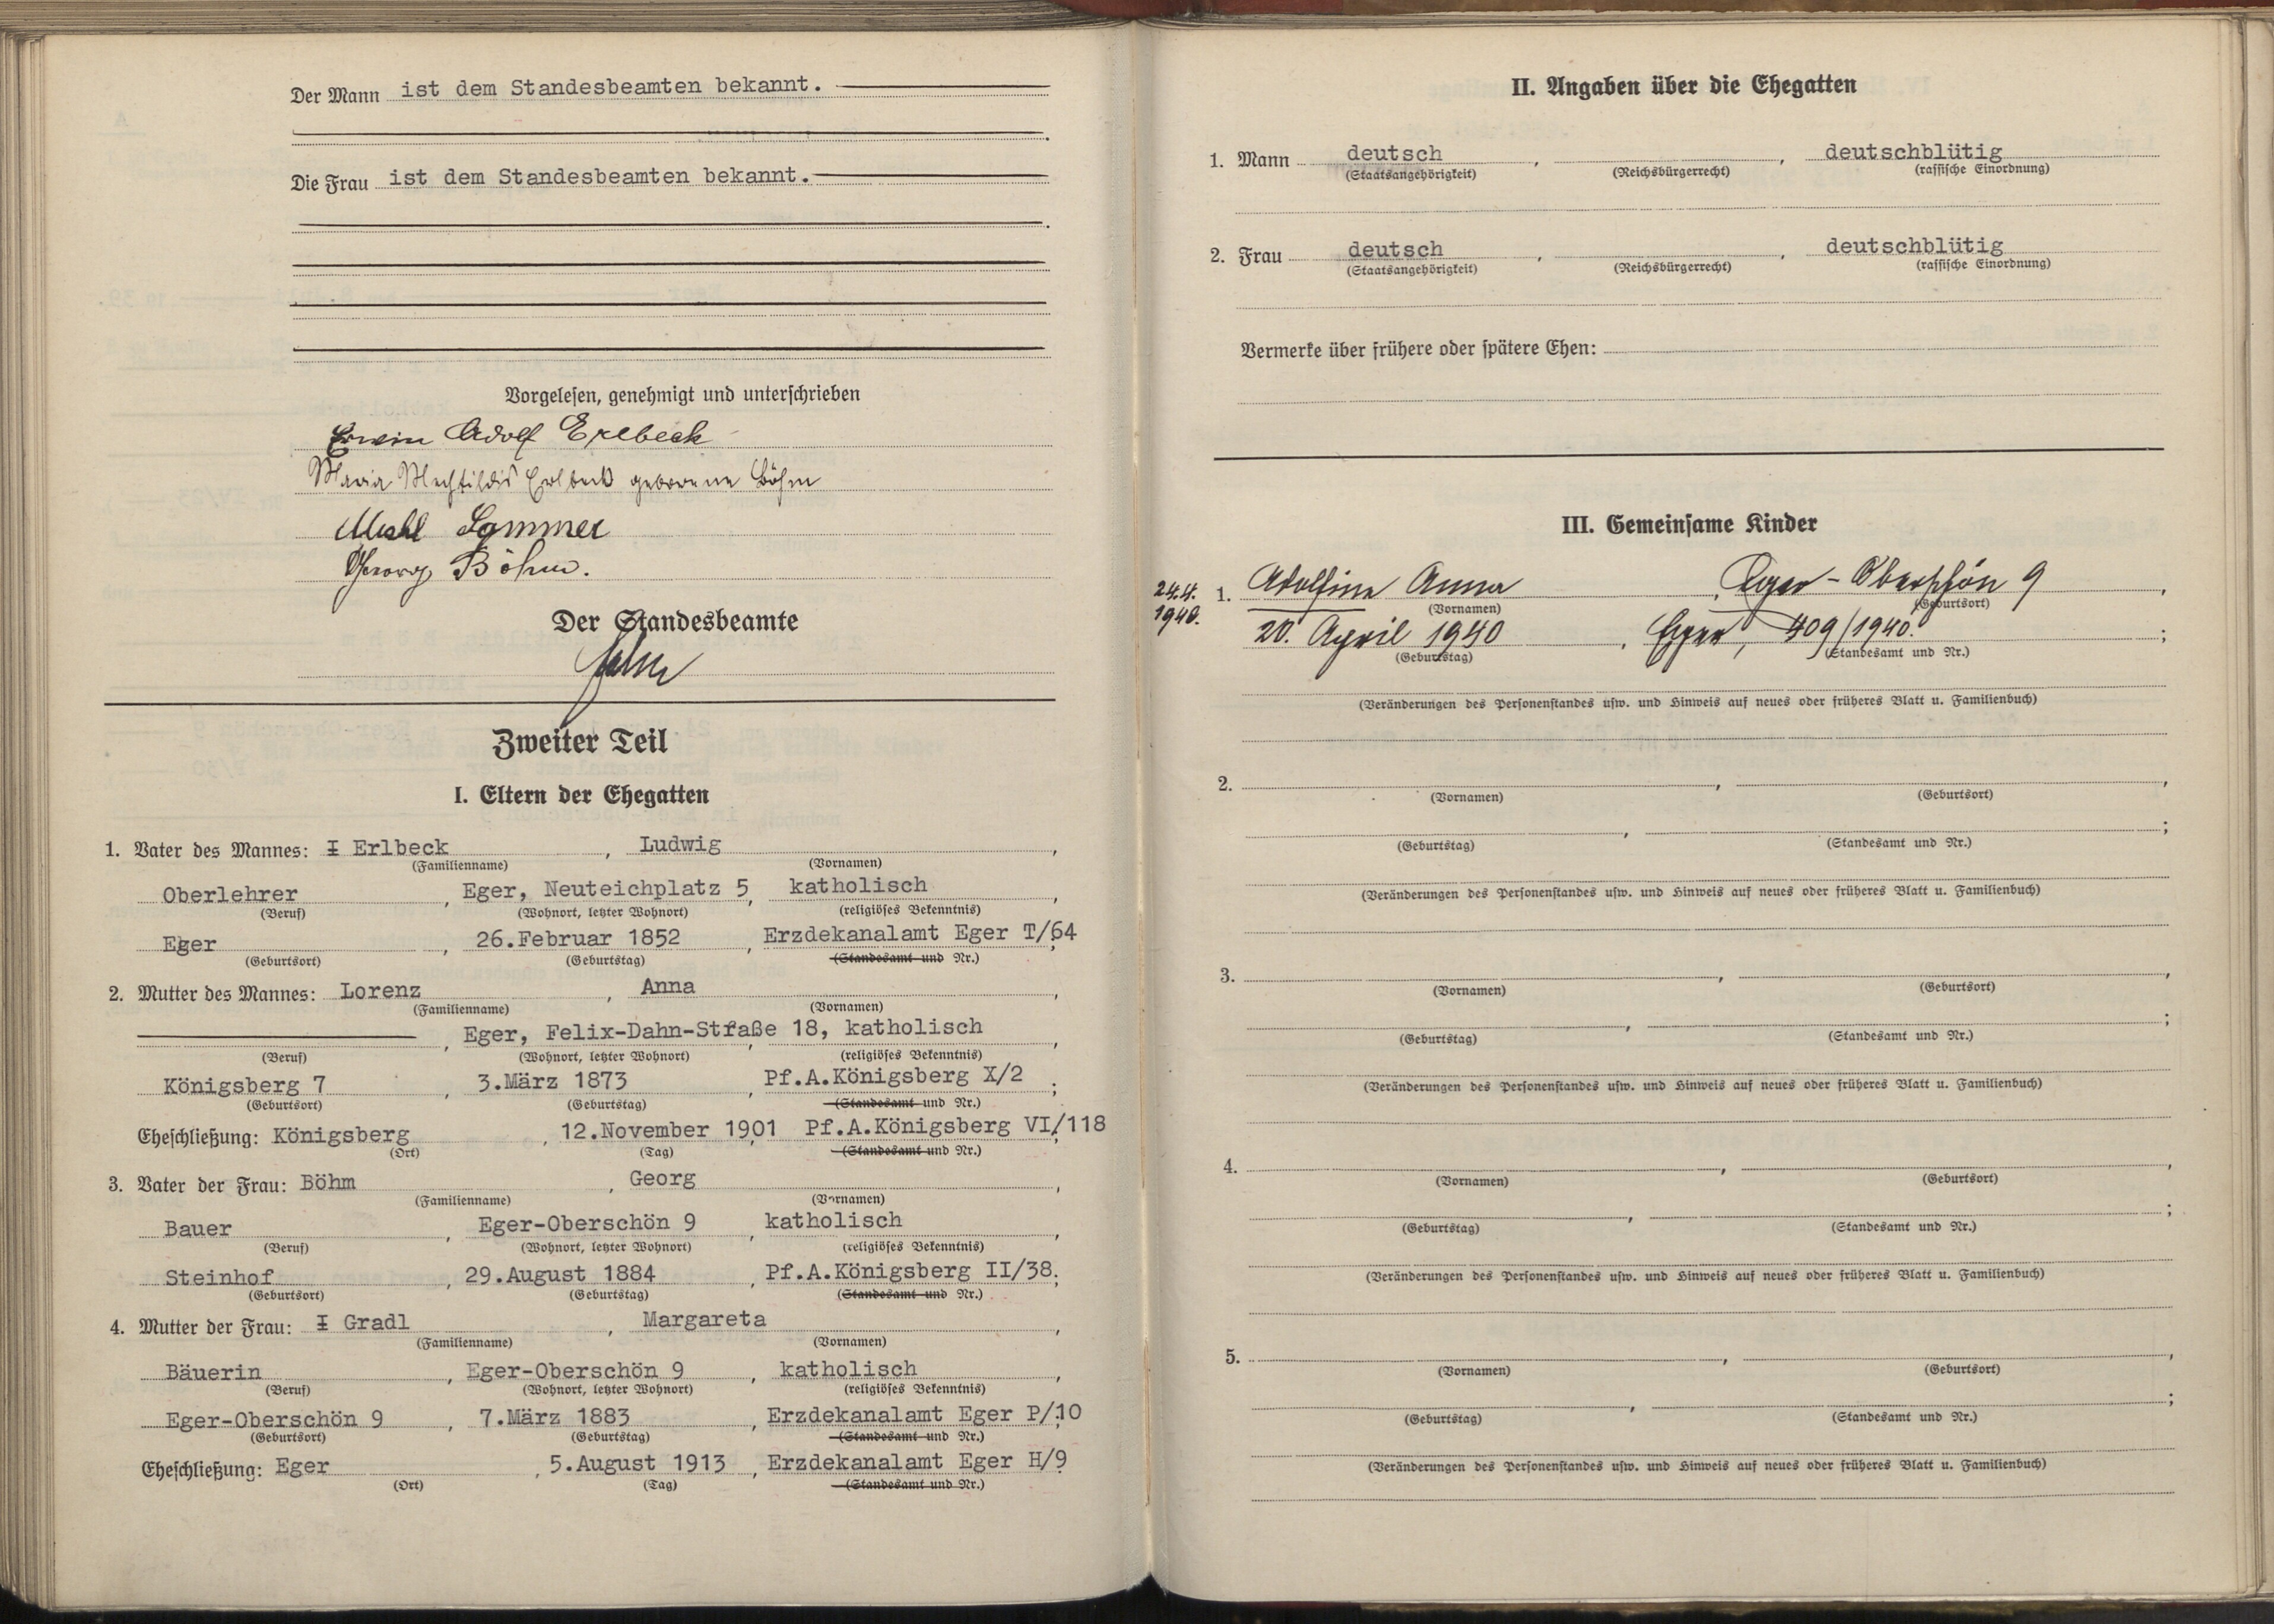 Der Mann ist dem Standesbeamten bekannt.
Die Frau ist dem Standesbeamten bekannt.
Vorgelesen, genehmigt und unterschrieben
Erwin Adolf Erlbeck
Maria Mechtildis Erlbeck geborene Böhm
Sommer
Georg Böhm.
Der Standesbeamte
Zweiter Teil
I. Eltern der Ehegatten
1. Vater des Mannes: I Erlbeck, Ludwig,
(Familienname) (Vornamen)
Oberlehrer, Eger, Neuteichplatz 5, katholisch,
(Beruf) (Wohnort, letzter Wohnort) (religiöses Bekenntnis)
Eger, 26.Februar 1852, Erzdekanalamt Eger T/64;
(Geburtsort) (Geburtstag) (Standesamt und Nr.)
2. Mutter des Mannes: Lorenz, Anna,
(Familienname) (Vornamen)
, Eger, Felix-Dahn-Straße 18, katholisch,
(Beruf) (Wohnort, letzter Wohnort) (religiöses Bekenntnis)
Königsberg 7, 3.März 1873, Pf.A.Königsberg X/2;
(Geburtsort) (Geburtstag) (Standesamt und Nr.)
Eheschließung: Königsberg, 12.November 1901, Pf.A.Königsberg VI/118;
(Ort) (Tag) (Standesamt und Nr.)
3. Vater der Frau: Böhm, Georg,
(Familienname) (Vornamen)
Bauer, Eger-Oberschön 9, katholisch,
(Beruf) (Wohnort, letzter Wohnort) (religiöses Bekenntnis)
Steinhof, 29.August 1884, Pf.A.Königsberg II/38;
(Geburtsort) (Geburtstag) (Standesamt und Nr.)
4. Mutter der Frau: I Gradl, Margareta,
(Familienname) (Vornamen)
Bäuerin, Eger-Oberschön 9, katholisch,
(Beruf) (Wohnort, letzter Wohnort) (religiöses Bekenntnis)
Eger-Oberschön 9, 7.März 1883, Erzdekanalamt Eger P/10;
(Geburtsort) (Geburtstag) (Standesamt und Nr.)
Eheschließung: Eger, 5.August 1913, Erzdekanalamt Eger H/9.
(Ort) (Tag) (Standesamt und Nr.)
II. Angaben über die Ehegatten
1. Mann deutsch, , deutschblütig
(Staatsangehörigkeit) (Reichsbürgerrecht) (rassische Einordnung)
2. Frau deutsch, , deutschblütig
(Staatsangehörigkeit) (Reichsbürgerrecht) (rassische Einordnung)
Vermerke über frühere oder spätere Ehen:
III. Gemeinsame Kinder
24.4. 1940. 1. Adolfine Anna, Eger-Oberschön 9,
(Vornamen) (Geburtsort)
20. April 1940, Eger, 409/1940.;
(Geburtstag) (Standesamt und Nr.)
(Veränderungen des Personenstandes usw. und Hinweis auf neues oder früheres Blatt u. Familienbuch)
2. , ,
(Vornamen) (Geburtsort)
, ;
(Geburtstag) (Standesamt und Nr.)
(Veränderungen des Personenstandes usw. und Hinweis auf neues oder früheres Blatt u. Familienbuch)
3. , ,
(Vornamen) (Geburtsort)
, ;
(Geburtstag) (Standesamt und Nr.)
(Veränderungen des Personenstandes usw. und Hinweis auf neues oder früheres Blatt u. Familienbuch)
4. , ,
(Vornamen) (Geburtsort)
, ;
(Geburtstag) (Standesamt und Nr.)
(Veränderungen des Personenstandes usw. und Hinweis auf neues oder früheres Blatt u. Familienbuch)
5. , ,
(Vornamen) (Geburtsort)
, ;
(Geburtstag) (Standesamt und Nr.)
(Veränderungen des Personenstandes usw. und Hinweis auf neues oder früheres Blatt u. Familienbuch)